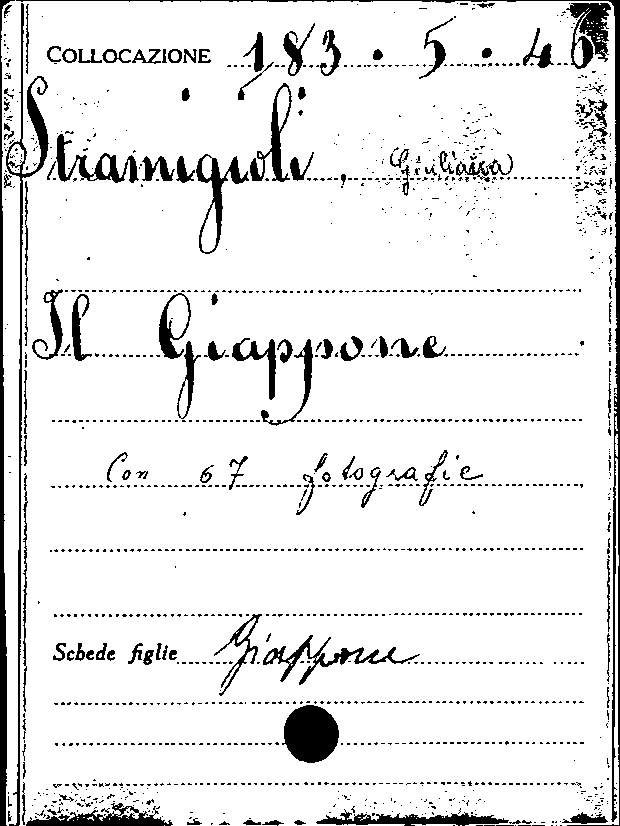 COLLOCAZIONE 183.5.46
Stramigioli, Giuliana
Il Giappone
Con 67 fotografie
Schede figlie Giappone